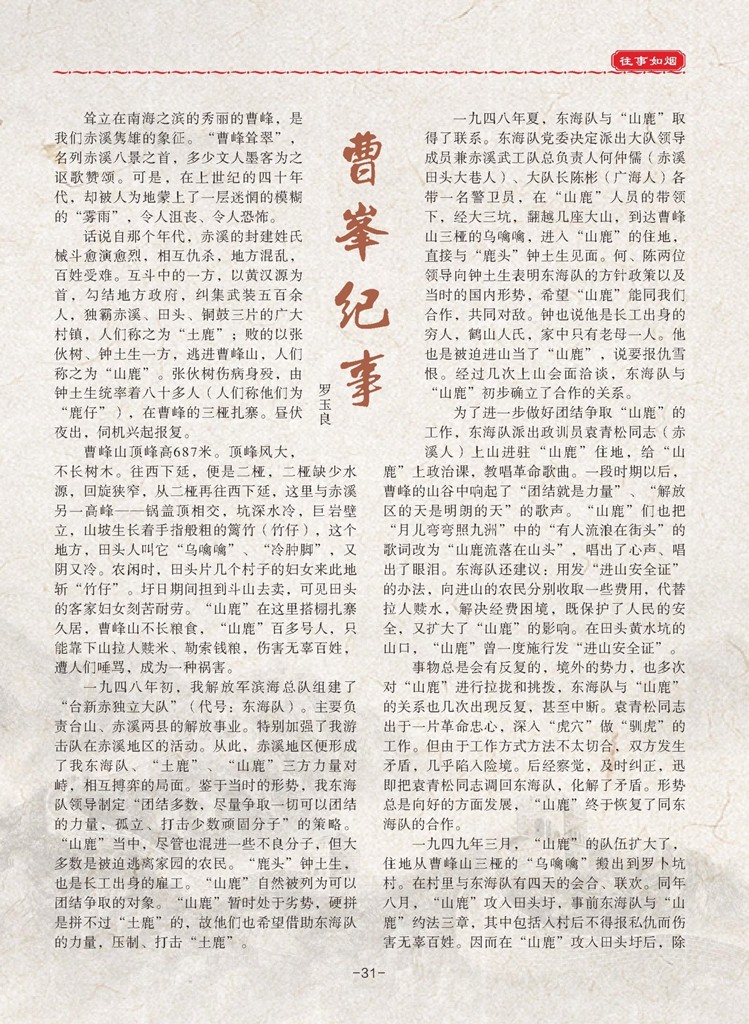 往事如烟
曹峯纪事
罗玉良
耸立在南海之滨的秀丽的曹峰，是
我们赤溪隽雄的象征。“曹峰耸翠”，
名列赤溪八景之首，多少文人墨客为之
讴歌赞颂。可是，在上世纪的四十年
代，却被人为地蒙上了一层迷惘的模糊
的“雾雨”，令人沮丧、令人恐怖。
话说自那个年代，赤溪的封建姓氏
械斗愈演愈烈，相互仇杀，地方混乱，
百姓受难。互斗中的一方，以黄汉源为
首，勾结地方政府，纠集武装五百余
人，独霸赤溪、田头、铜鼓三片的广大
村镇，人们称之为“土鹿”；败的以张
伙树、钟土生一方，逃进曹峰山，人们
称之为“山鹿”。张伙树伤病身殁，由
钟土生统率着八十多人（人们称他们为
“鹿仔”），在曹峰的三桠扎寨。昼伏
夜出，伺机兴起报复。
曹峰山顶峰高687米。顶峰风大，
不长树木。往西下延，便是二桠，二桠缺少水
源，回旋狭窄，从二桠再往西下延，这里与赤溪
另一高峰——锅盖顶相交，坑深水冷，巨岩壁
立，山坡生长着手指般粗的篱竹（竹仔），这个
地方，田头人叫它“乌噙噙”、“冷肿脚”，又
阴又冷。农闲时，田头片几个村子的妇女来此地
斩“竹仔”。圩日期间担到斗山去卖，可见田头
的客家妇女刻苦耐劳。“山鹿”在这里搭棚扎寨
久居，曹峰山不长粮食，“山鹿”百多号人，只
能靠下山拉人赎米、勒索钱粮，伤害无辜百姓，
遭人们唾骂，成为一种祸害。
一九四八年初，我解放军滨海总队组建了
“台新赤独立大队”（代号：东海队）。主要负
责台山、赤溪两县的解放事业。特别加强了我游
击队在赤溪地区的活动。从此，赤溪地区便形成
了我东海队、“土鹿”、“山鹿”三方力量对
峙，相互搏弈的局面。鉴于当时的形势，我东海
队领导制定“团结多数，尽量争取一切可以团结
的力量，孤立、打击少数顽固分子”的策略。
“山鹿”当中，尽管也混进一些不良分子，但大
多数是被迫逃离家园的农民。“鹿头”钟土生，
也是长工出身的雇工。“山鹿”自然被列为可以
团结争取的对象。“山鹿”暂时处于劣势，硬拼
是拼不过“土鹿”的，故他们也希望借助东海队
的力量，压制、打击“土鹿”。
一九四八年夏，东海队与“山鹿”取
得了联系。东海队党委决定派出大队领导
成员兼赤溪武工队总负责人何仲儒（赤溪
田头大巷人）、大队长陈彬（广海人）各
带一名警卫员，在“山鹿”人员的带领
下，经大三坑，翻越几座大山，到达曹峰
山三桠的乌噙噙，进入“山鹿”的住地，
直接与“鹿头”钟土生见面。何、陈两位
领导向钟土生表明东海队的方针政策以及
当时的国内形势，希望“山鹿”能同我们
合作，共同对敌。钟也说他是长工出身的
穷人，鹤山人氏，家中只有老母一人。他
也是被迫进山当了“山鹿”，说要报仇雪
恨。经过几次上山会面洽谈，东海队与
“山鹿”初步确立了合作的关系。
为了进一步做好团结争取“山鹿”的
工作，东海队派出政训员袁青松同志（赤
溪人）上山进驻“山鹿”住地，给“山
鹿”上政治课，教唱革命歌曲。一段时期以后，
曹峰的山谷中响起了“团结就是力量”、“解放
区的天是明朗的天”的歌声。“山鹿”们也把
“月儿弯弯照九洲”中的“有人流浪在街头”的
歌词改为“山鹿流落在山头”，唱出了心声、唱
出了眼泪。东海队还建议：用发“进山安全证”
的办法，向进山的农民分别收取一些费用，代替
拉人赎水，解决经费困境，既保护了人民的安
全，又扩大了“山鹿”的影响。在田头黄水坑的
山口，“山鹿”曾一度施行发“进山安全证”。
事物总是会有反复的，境外的势力，也多次
对“山鹿”进行拉拢和挑拨，东海队与“山鹿”
的关系也几次出现反复，甚至中断。袁青松同志
出于一片革命忠心，深入“虎穴”做“驯虎”的
工作。但由于工作方式方法不太切合，双方发生
矛盾，几乎陷入险境。后经察觉，及时纠正，迅
即把袁青松同志调回东海队，化解了矛盾。形势
总是向好的方面发展，“山鹿”终于恢复了同东
海队的合作。
一九四九年三月，“山鹿”的队伍扩大了，
住地从曹峰山三桠的“乌噙噙”搬出到罗卜坑
村。在村里与东海队有四天的会合、联欢。同年
八月，“山鹿”攻入田头圩，事前东海队与“山
鹿”约法三章，其中包括入村后不得报私仇而伤
害无辜百姓。因而在“山鹿”攻入田头圩后，除
-31-